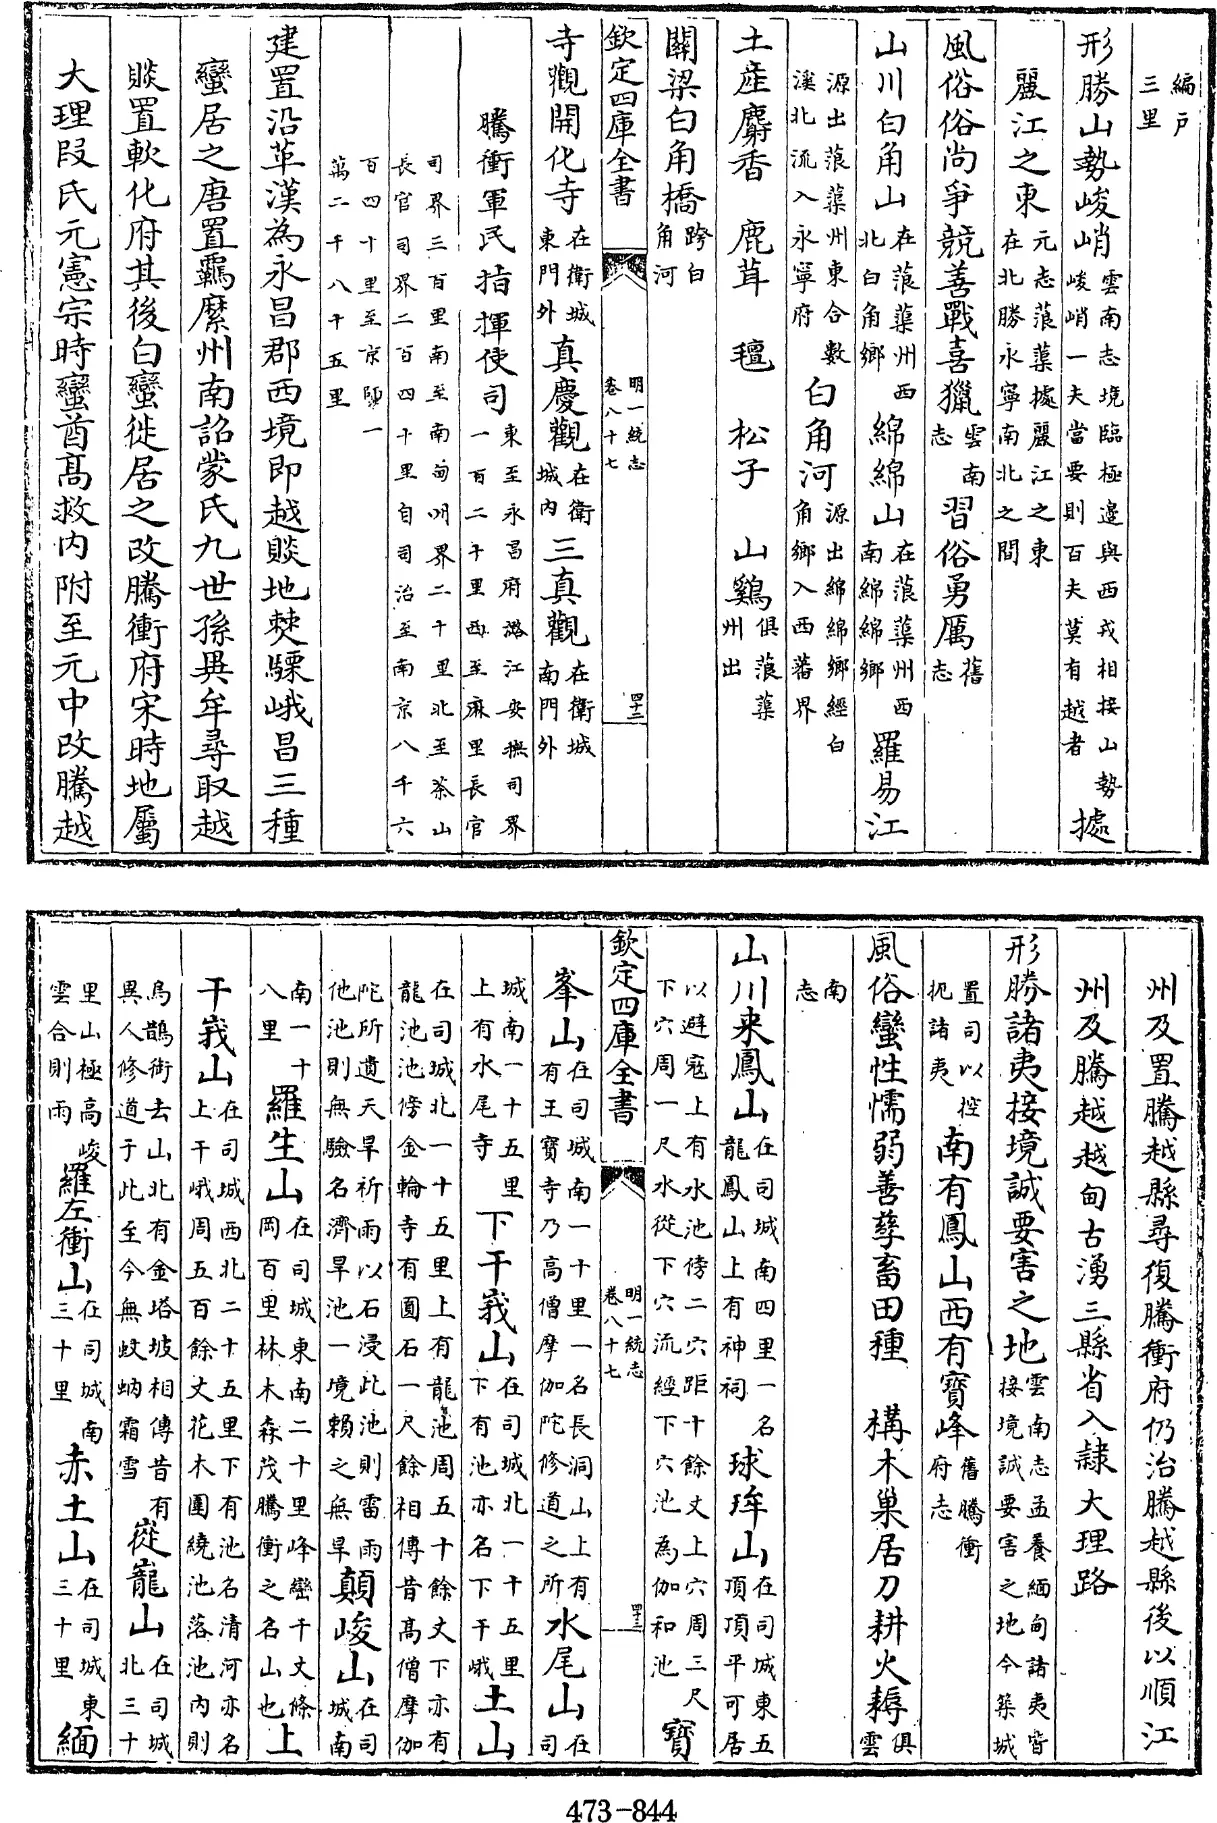 編戶三里
形勝山勢峻峭雲南志境臨極邉與西戎相接山勢峻峭一夫當要則百夫莫有越者據
麗江之東元志蒗蕖據麗江之東在北勝永寧南北之間
風俗俗尚爭競善戰喜獵雲南志習俗勇厲舊志
山川白角山在蒗蕖州西北白角鄉綿綿山在蒗蕖州西南綿綿鄉羅易江
源出蒗蕖州東合數溪北流入永寧府白角河源出綿綿鄉經白角鄉入西蕃界
土產麝香 鹿茸 氊 松子 山鷄俱蒗蕖州出
關梁白角橋跨白角河
欽定四庫全書 明一統志卷八十七 四十二
寺觀開化寺在衛城東門外真慶觀在衛城内三真觀在衛城南門外
騰衝軍民指揮使司東至永昌府潞江安撫司界一百二十里西至麻里長官
司界三百里南至南甸州界二十里北至茶山長官司界二百四十里自司治至南京八千六
百四十里至京師一萬二千八十五里
建置沿革漢為永昌郡西境即越賧地僰驃峨昌三種
蠻居之唐置羈縻州南詔蒙氏九世孫異牟尋取越
賧置軟化府其後白蠻徙居之改騰衝府宋時地屬
大理段氏元憲宗時蠻酋髙救内附至元中改騰越
州及置騰越縣尋復騰衝府仍治騰越縣後以順江
州及騰越越甸古湧三縣省入隸大理路
形勝諸夷接境誠要害之地雲南志孟養緬甸諸夷皆接境誠要害之地今築城
置司以控扼諸夷南有鳳山西有寳峰舊騰衝府志
風俗蠻性懦弱善孳畜田種 構木巢居刀耕火耨俱雲
南志
山川来鳳山在司城南四里一名龍鳳山上有神祠球牟山在司城東五項頂平可居
以避寇上有水池傍二穴距十餘丈上穴周三尺下穴周一尺水從下穴流經下穴池為伽和池寳
欽定四庫全書 明一統志卷八十七 四十三
峯山在司城南一十里一名長洞山上有有王寳寺乃高僧摩伽陀修道之所水尾山在司
城南一十五里上有水尾寺下干峩山在司城北一十五里下有池亦名下干峨土山
在司城北一十五里上有龍池周五十餘丈下亦有龍池池傍金輪寺有圓石一尺餘相傳昔髙僧摩伽
陀所遺天旱祈雨以石浸此池則雷雨他池則無驗名濟旱池一境賴之無旱顛峻山在司城南
南一十八里羅生山在司城東南二十里峰巒千丈條岡百里林木森茂騰衝之名山也上
干峩山在司城西北二十五里下有池名清河亦名上干峨周五百餘丈花木圍繞池落池内則
烏鵲銜去山北有金塔坡相傳昔有異人修道于此至今無蚊蚋霜雪嵸寵山在司城北三十
里山極高峻雲合則雨羅左衝山在司城南三十里赤土山在司城東三十里緬
473-844